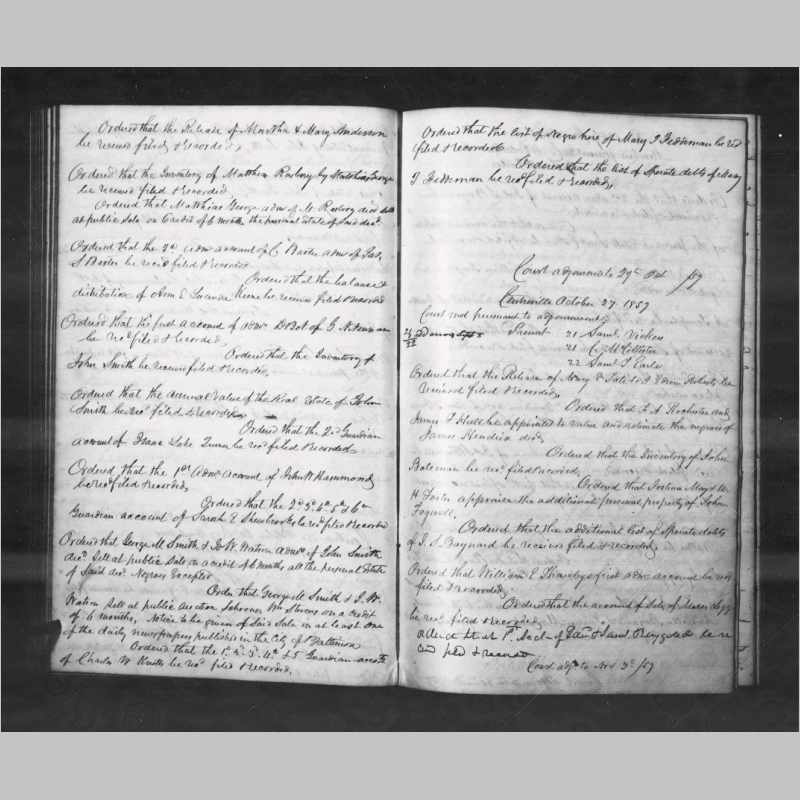 Ordered that the Release of Martha & Mary Anderson
be received filed & recorded.
Ordered that the Inventory of Matthew by Matthias George
be received filed & recorded
Ordered that Matthias George admr of M. decd sell
at public Sale on Credit of 6 months the personal estate of Said decd.
Ordered that the 2d admr account of C Baxter admr of Jas.
S Baxter be recd filed & recorded
Ordered that the balance &
distribution of Ann E be received filed & recorded
Ordered that the first account of admr D B of G
be recd filed & recorded,
Ordered that the Inventory of
John Smith be received filed & recorded,
Ordered that the annual value of the Real Estate of John
Smith be recd filed & recorded
Ordered that the 2d Guardian
account of Isaac be recd filed & Recorded
Ordered that the 1st admr account of John W Hammond
be recd filed & recorded,
Ordered that the 2d 3d 4th 5th & 6th
Guardian account of Sarah E be recd filed & recorded
Ordered that George M Smith & J. W. Watson admr of John Smith
decd Sell at public Sale on a credit of 6 months all the personal Estate
of Said decd Negroes Excepted
Order that George M Smith & J. W.
Watson Sell at public auction Schooner Wm on a credit
of 6 months, Notice be given of Said Sale in at least one
of the daily newspapers published in the City of Baltimore
Ordered that the 1st 2d 3d 4th & 5 Guardian accts
of Charles W be recd filed & recorded,
Ordered that the list of Negro hire of Mary T be recd
filed & recorded
Ordered that the list of Sperate debts of Mary
T be recd filed & recorded,
Court adjourned to 27th Oct /57
Centreville October 27. 1857
Court met pursuant to adjournment
Present 21 Saml
21 C. McCollister
22 Saml T Earle
Ordered that the Release of Mary & be
received filed & recorded,
Ordered that F. A Rochester and
James be appointed to value and estimate the negroes of
James decd,
Ordered that the Inventory of John
Bateman be recd filed & recorded,
Ordered that Joshua & W.
H Foster appraise the additional personal property of John
Fogwell,
Ordered that the additional list of Sperate debts
of J. S Baynard be received filed & recorded,
Ordered that William E first admr account be recd
filed & recorded,
Ordered that the account of Sale of Clagg
be recd filed & recorded
Ordered that of be re
cd filed & recorded
Court adjd to Nov 3d /57